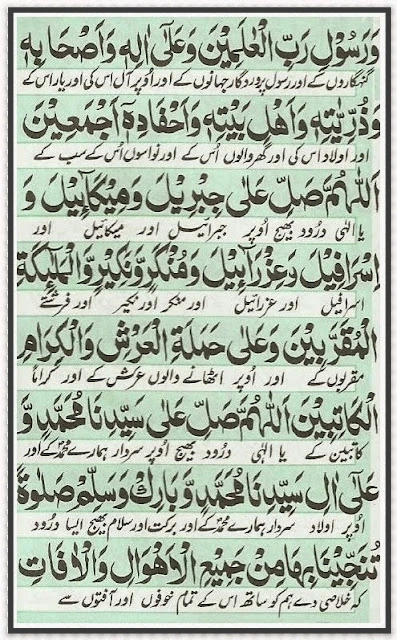 وَرَسُوْلِ رَبِّ الْعٰلَمِيْنَ وَعَلٰٓى اٰلِهٖ وَاَصْحَابِهٖ
گنہگاروں کے اور رسول پروردگار جہانوں کے اور اوپر آل اس کی اور یار اس کے
وَذُرِّيّٰتِهٖ وَاَهْلِ بَيْتِهٖ وَاَحْفَادِهٖٓ اَجْمَعِيْنَ
اور اولاد اس کی اور گھر والوں اُس کے اور نواسوں اُس کے سب کے
اَللّٰهُمَّ صَلِّ عَلٰى جِبْرِيْلَ وَمِيْكَآئِيْلَ وَ
یا الٰہی درُود بھیج اُوپر جبرائیل اور میکائیل اور
اِسْرَافِيْلَ وَعِزْرَآئِيْلَ وَمُنْكَرٍ وَّنَكِيْرٍ وَّالْمَلٰٓئِكَةِ
اسرافیل اور عزرائیل اور منکر اور نکیر اور فرشتے
الْمُقَرَّبِيْنَ وَعَلٰى حَمَلَةِ الْعَرْشِ وَالْكِرَامِ
مقربوں کے اور اوپر اٹھانے والوں عرش کے اور کراماً
الْكَاتِبِيْنَ اَللّٰهُمَّ صَلِّ عَلٰى سَيِّدِنَا مُحَمَّدٍ وَّ
کاتبین کے یا الٰہی درُود بھیج اُوپر سردار ہمارے محمدؐ کے اور
عَلٰٓى اٰلِ سَيِّدِنَا مُحَمَّدٍ وَّبَارِكْ وَسَلِّمْ صَلٰوةً
اُوپر اولاد سردار ہمارے محمدؐ کے اور برکت اور سلام بھیج ایسا درُود
تُنَجِّيْنَا بِهَا مِنْ جَمِيْعِ الْاَهْوَالِ وَالْاٰفَاتِ
کہ خلاصی دے ہم کو ساتھ اس کے تمام خوفوں اور آفتوں سے